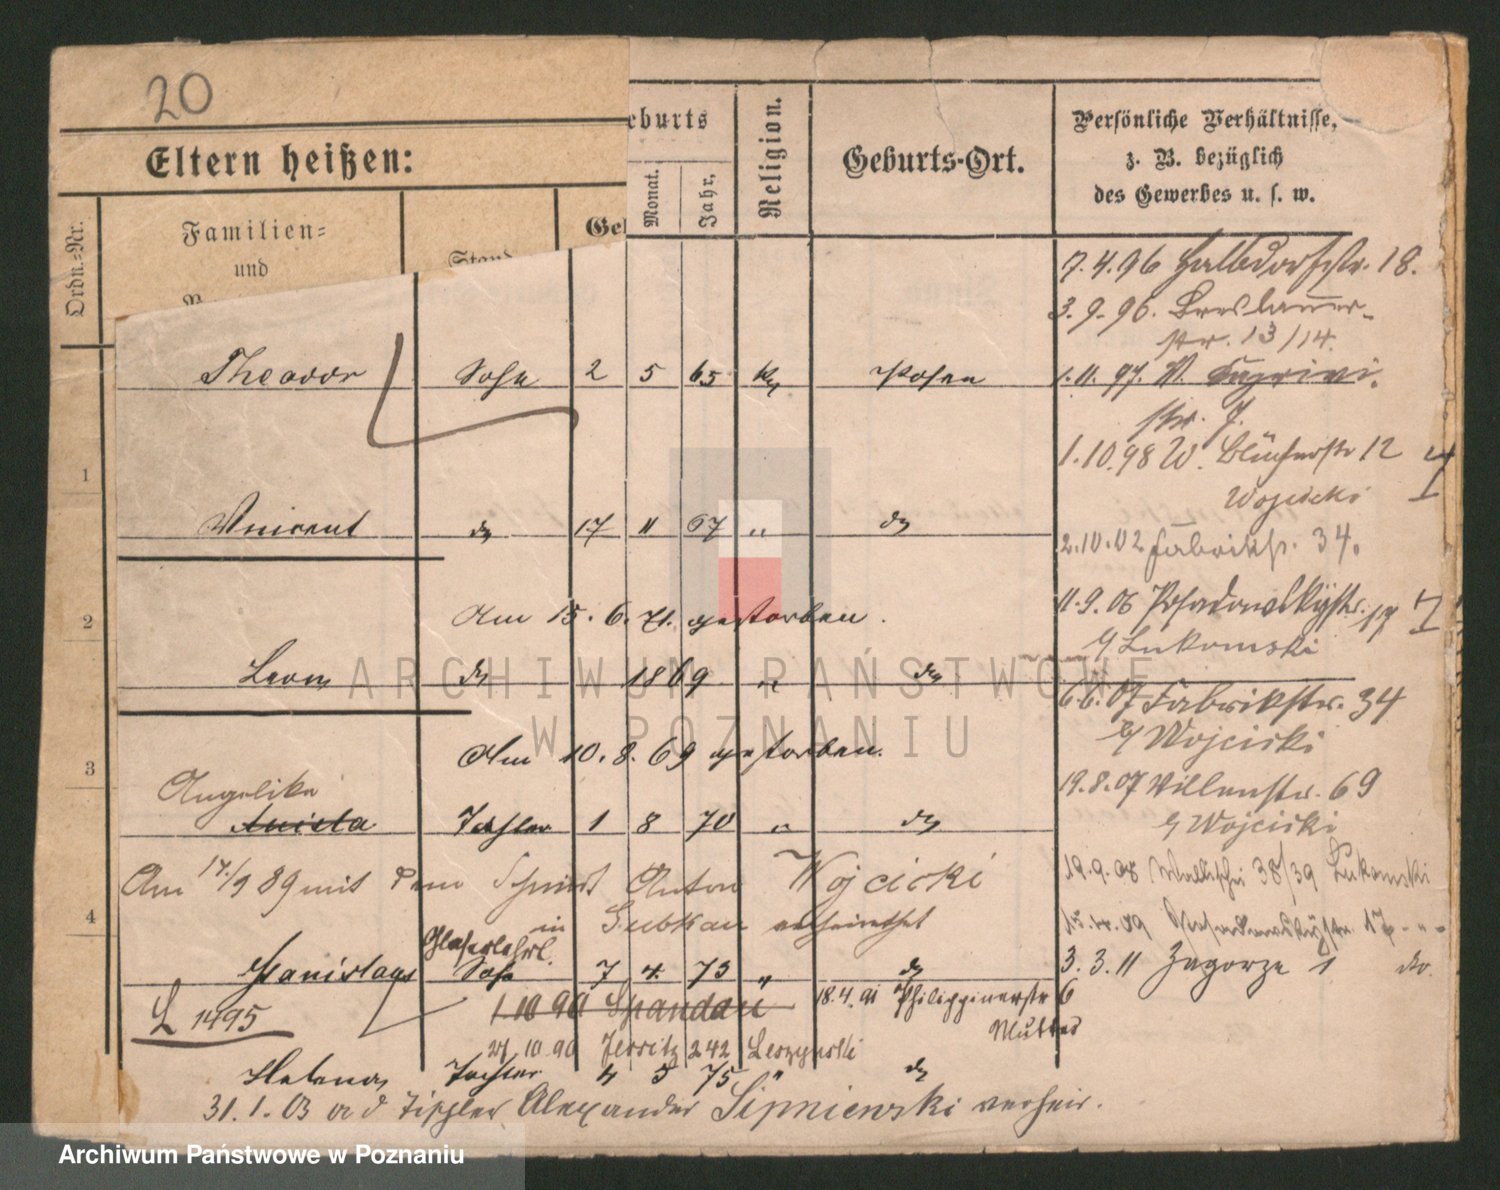 20
Eltern heißen:
eburts
Religion.
Geburts-Ort.
Persönliche Verhältnisse,
z. B. bezüglich
des Gewerbes u. s. w.
Ordn.-Nr.
Familien-
und
Stand
Ge
Monat.
Jahr,
7.4.96 Halbdorfstr. 18.
3.9.96. Breslauer-
str. 13/14.
Theodor Sohn 2 5 65 Posen
1.11.97. W.
str. 7.
1.10.98 W. Blücherstr 12
1
Wojcicki
Vincent do 17 11 67 " do
2.10.02 Fabrikstr. 34.
2
Am 15. 6. 71. gestorben.
11.9.06 Posadowskystr. 17
Lukomski
Leon do 1869 " do
6.6.07 Fabrikstr. 34
Wojciski
3
Am 10. 8. 69 gestorben.
19.8.07 Villenstr. 69
Wojciski
Angelika
Aniela Tochter 1 8 70 " do
Am 17/9 89 mit dem Schmied Anton Wojcicki
in Gubkau verheirathet
19.9.08 Wallischei 38/39 Lukomski
4
15.4.09 Posadowskystr. 17 - " -
Glaserlehrl.
Stanislaus Sohn 7 4. 73 " do
3.3.11 Zagorze 1 do.
£ 1495
1.10 90 Spandau
18.4.91 Philippinerstr 6
Mutter
27.10.90 Jersitz 242 Leszynski
Helena Tochter 4 5 75 " do
31.1.03 a d Tischler Alexander Sipniewski verheir.
ARCHIWUM PAŃSTWOWE
W POZNANIU
Archiwum Państwowe w Poznaniu